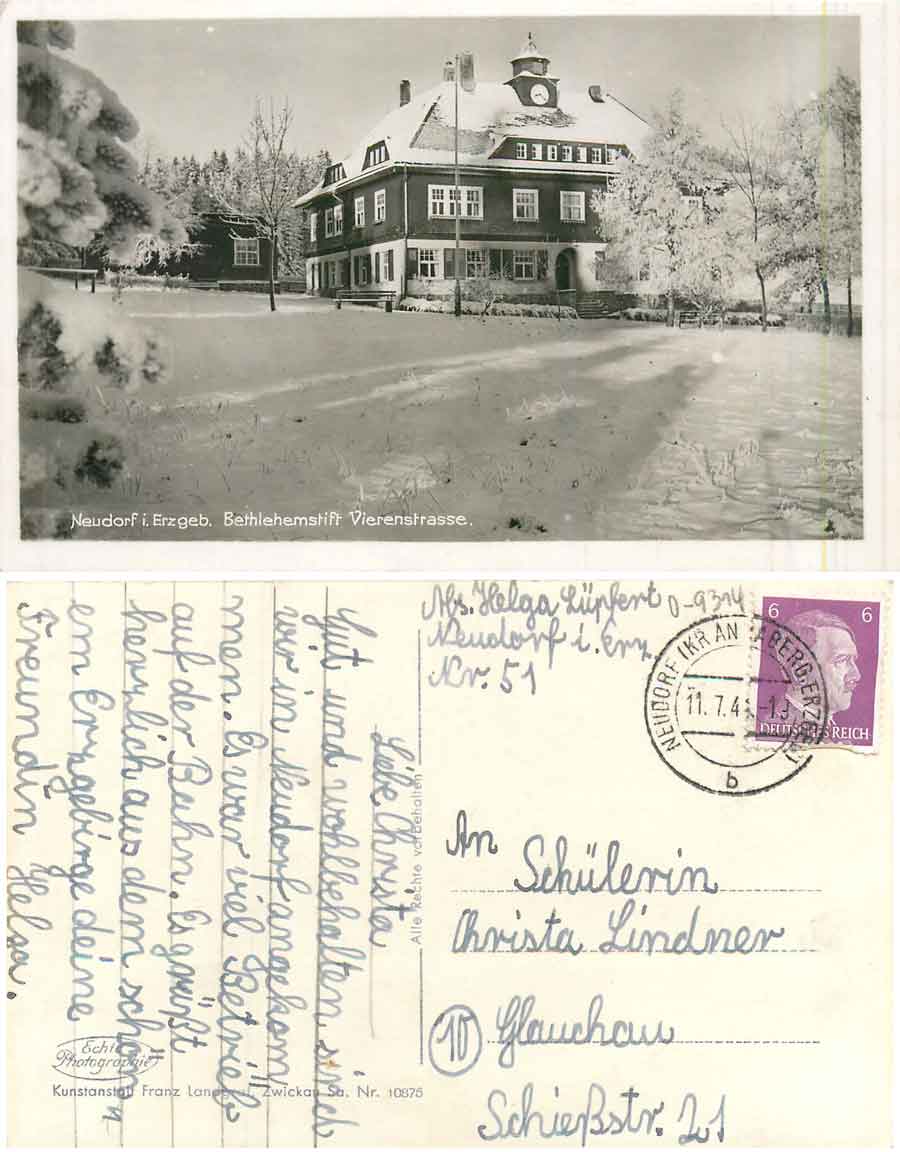 Neudorf i. Erzgeb. Bethlehemstift Vierenstrasse.
Abs. Helga Lüpfert
Neudorf i. Erz.
Nr. 51
0-9314
6 6
DEUTSCHES REICH
NEUDORF (KR ANNABERG, ERZGEB)
11. 7. 4
b
Liebe Christa
Gut und wohlbehalten sind
wir in Neudorf angekom
men. Es war viel Betrieb
auf der Bahn. Es grüßt
herzlich aus dem schön
em Erzgebirge deine
Freundin Helga.
Alle Rechte vorbehalten
An
Schülerin
Christa Lindner
10 Glauchau
Schießstr. 21
Echte
Photographie
Kunstanstalt Franz Landgraf, Zwickau Sa. Nr. 10875